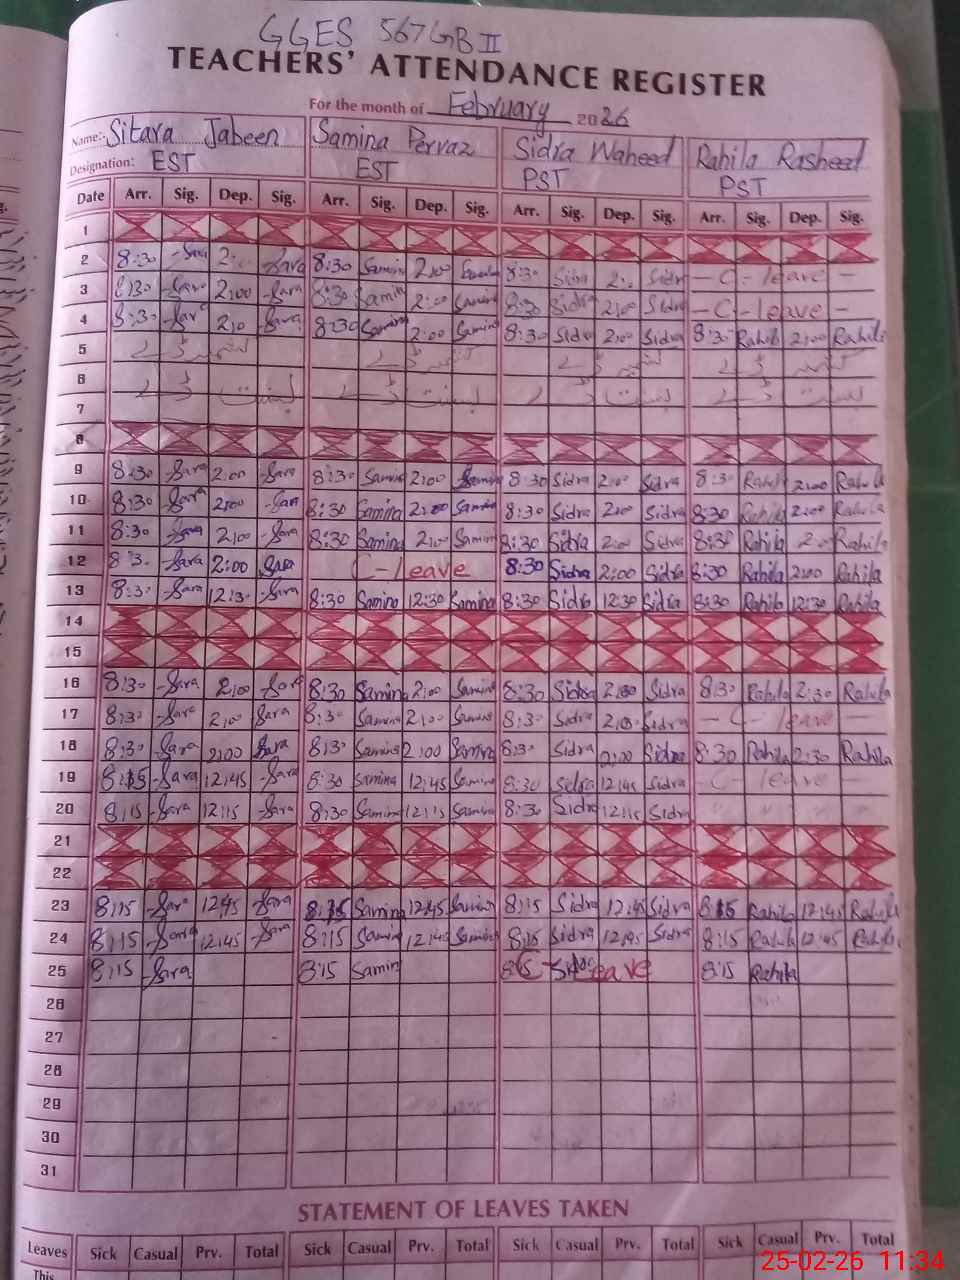 GGES 567 GB II
TEACHERS' ATTENDANCE REGISTER
For the month of February 2026
Name:- Sitara Jabeen Samina Pervaz Sidra Waheed Rahila Rasheed
Designation: EST EST PST PST
Date Arr. Sig. Dep. Sig. Arr. Sig. Dep. Sig. Arr. Sig. Dep. Sig. Arr. Sig. Dep. Sig.
1
2 8:30 Sara Sara 8:30 Samina 2:00 8:30 Sidra Sidra - C - leave -
3 8:30 Sara 2:00 Sara 8:30 Samina 2:00 Samina 8:30 Sidra 2:00 Sidra - C - leave -
4 8:30 Sara Sara 8:30 Samina 2:00 Samina 8:30 Sidra 2:00 Sidra 8:30 Rahila 2:00 Rahila
5
6
7
8
9 8:30 Sara 2:00 Sara 8:30 Samina 2:00 Samina 8:30 Sidra 2:00 Sidra 8:30 Rahila 2:00 Rahila
10 8:30 Sara 2:00 Sara 8:30 Samina 2:00 Samina 8:30 Sidra 2:00 Sidra 8:30 Rahila 2:00 Rahila
11 8:30 Sara 2:00 Sara 8:30 Samina 2:00 Samina 8:30 Sidra 2:00 Sidra 8:30 Rahila Rahila
12 Sara 2:00 Sara C - leave 8:30 Sidra 2:00 Sidra 8:30 Rahila 2:00 Rahila
13 8:30 Sara 12:30 Sara 8:30 Samina 12:30 Samina 8:30 Sidra 12:30 Sidra 8:30 Rahila 12:30 Rahila
14
15
16 8:30 Sara 2:00 Sara 8:30 Samina 2:00 Samina 8:30 Sidra Sidra 8:30 Rahila 2:30 Rahila
17 8:30 Sara 2:00 Sara 8:30 Samina 2:00 Samina 8:30 Sidra Sidra - C - leave -
18 8:30 Sara 2:00 Sara 8:30 Samina 2:00 Samina 8:30 Sidra 2:00 Sidra 8:30 Rahila 2:30 Rahila
19 8:15 Sara 12:45 Sara 8:30 Samina 12:45 Samina 8:30 Sidra 12:45 Sidra - C - leave -
20 8:15 Sara 12:15 Sara 8:30 Samina 12:15 Samina 8:30 Sidra 12:15 Sidra
21
22
23 8:15 Sara 12:45 Sara 8:15 Samina 12:45 Samina 8:15 Sidra 12:45 Sidra 8:15 Rahila 12:45 Rahila
24 8:15 Sara 12:45 Sara 8:15 Samina 12:45 Samina 8:15 Sidra 12:45 Sidra 8:15 Rahila 12:45 Rahila
25 8:15 Sara 8:15 Samina C - leave 8:15 Rahila
26
27
28
29
30
31
STATEMENT OF LEAVES TAKEN
Leaves Sick Casual Prv. Total Sick Casual Prv. Total Sick Casual Prv. Total Sick Casual Prv. Total
This
25-02-26 11:34